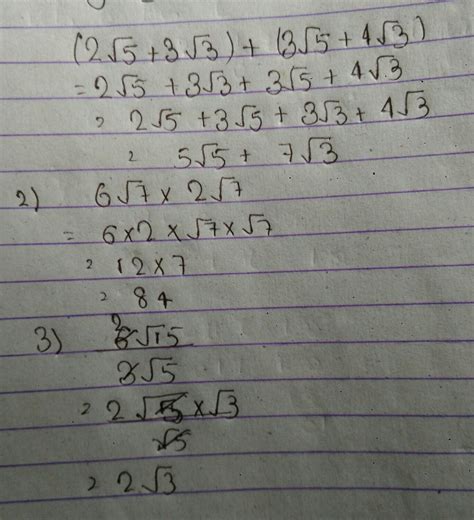 (2√5 + 3√3) + (3√5 + 4√3)
= 2√5 + 3√3 + 3√5 + 4√3
= 2√5 + 3√5 + 3√3 + 4√3
= 5√5 + 7√3
2) 6√7 × 2√7
= 6×2 × √7×√7
= 12×7
= 84
3) 2
6√15
3√5
= 2√5×√3
√5
= 2√3